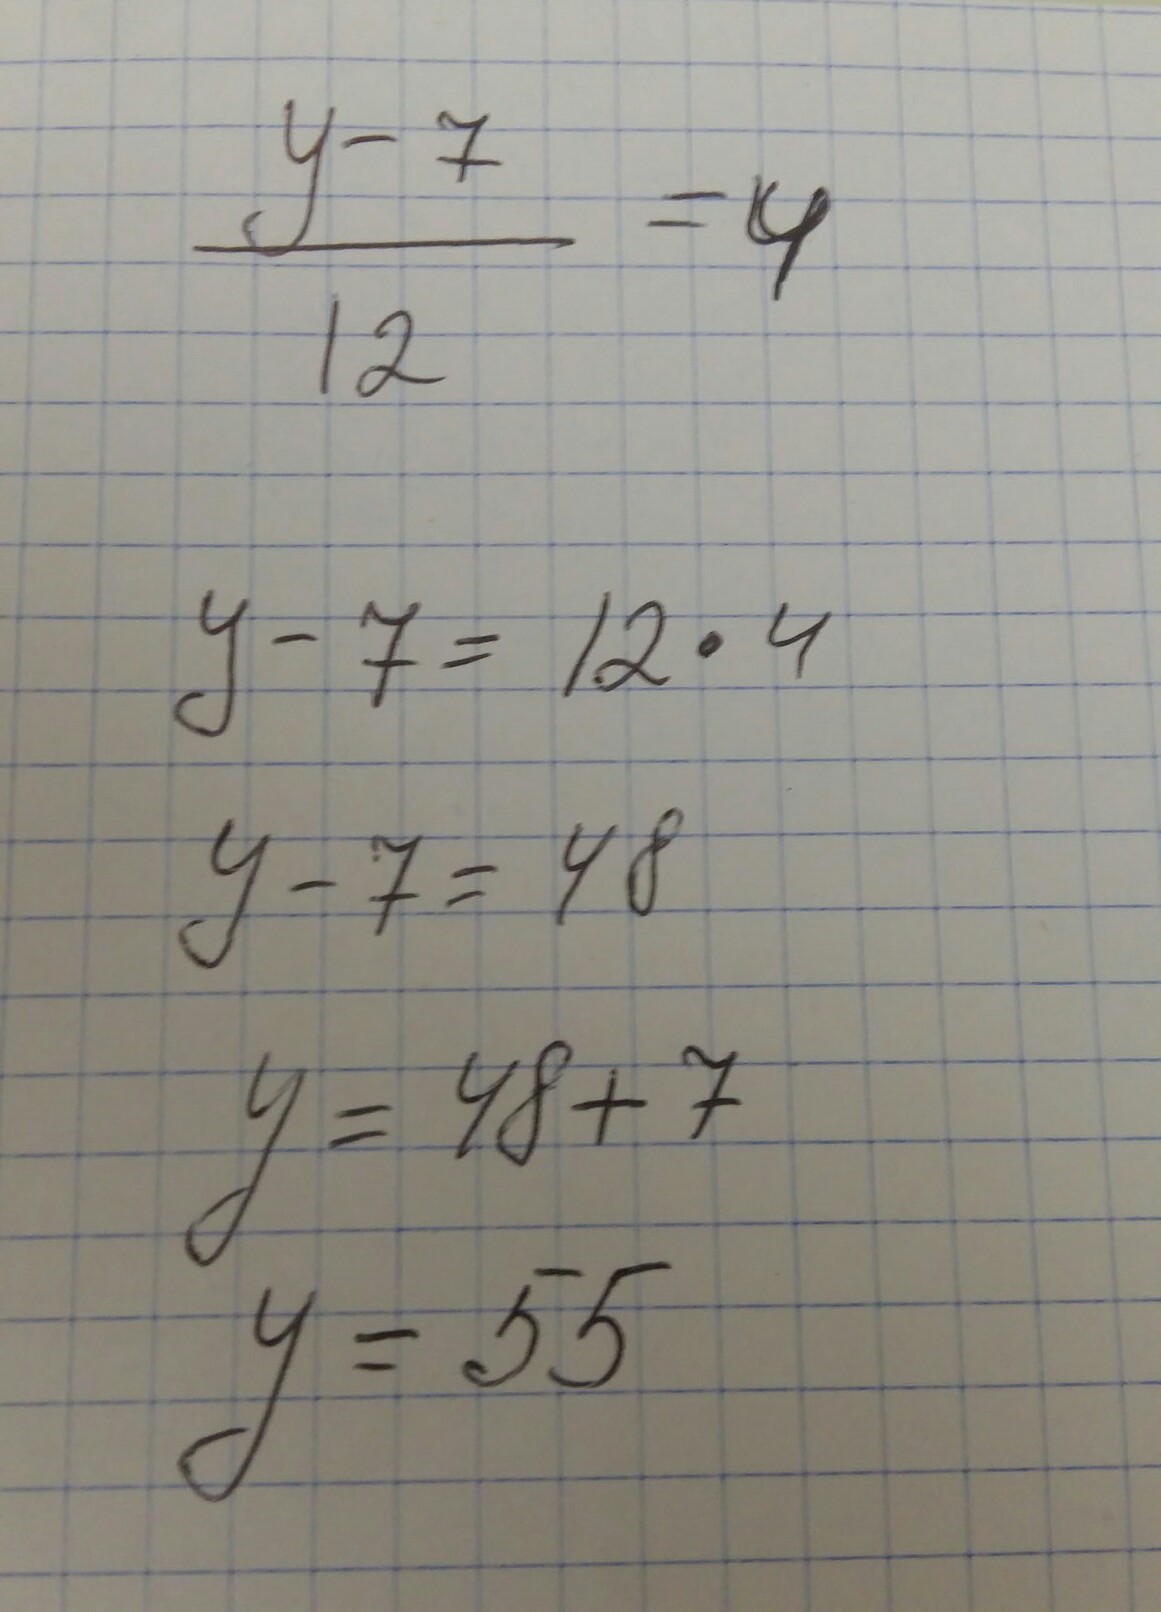 y - 7
/ 12 = 4
y - 7 = 12 · 4
y - 7 = 48
y = 48 + 7
y = 55